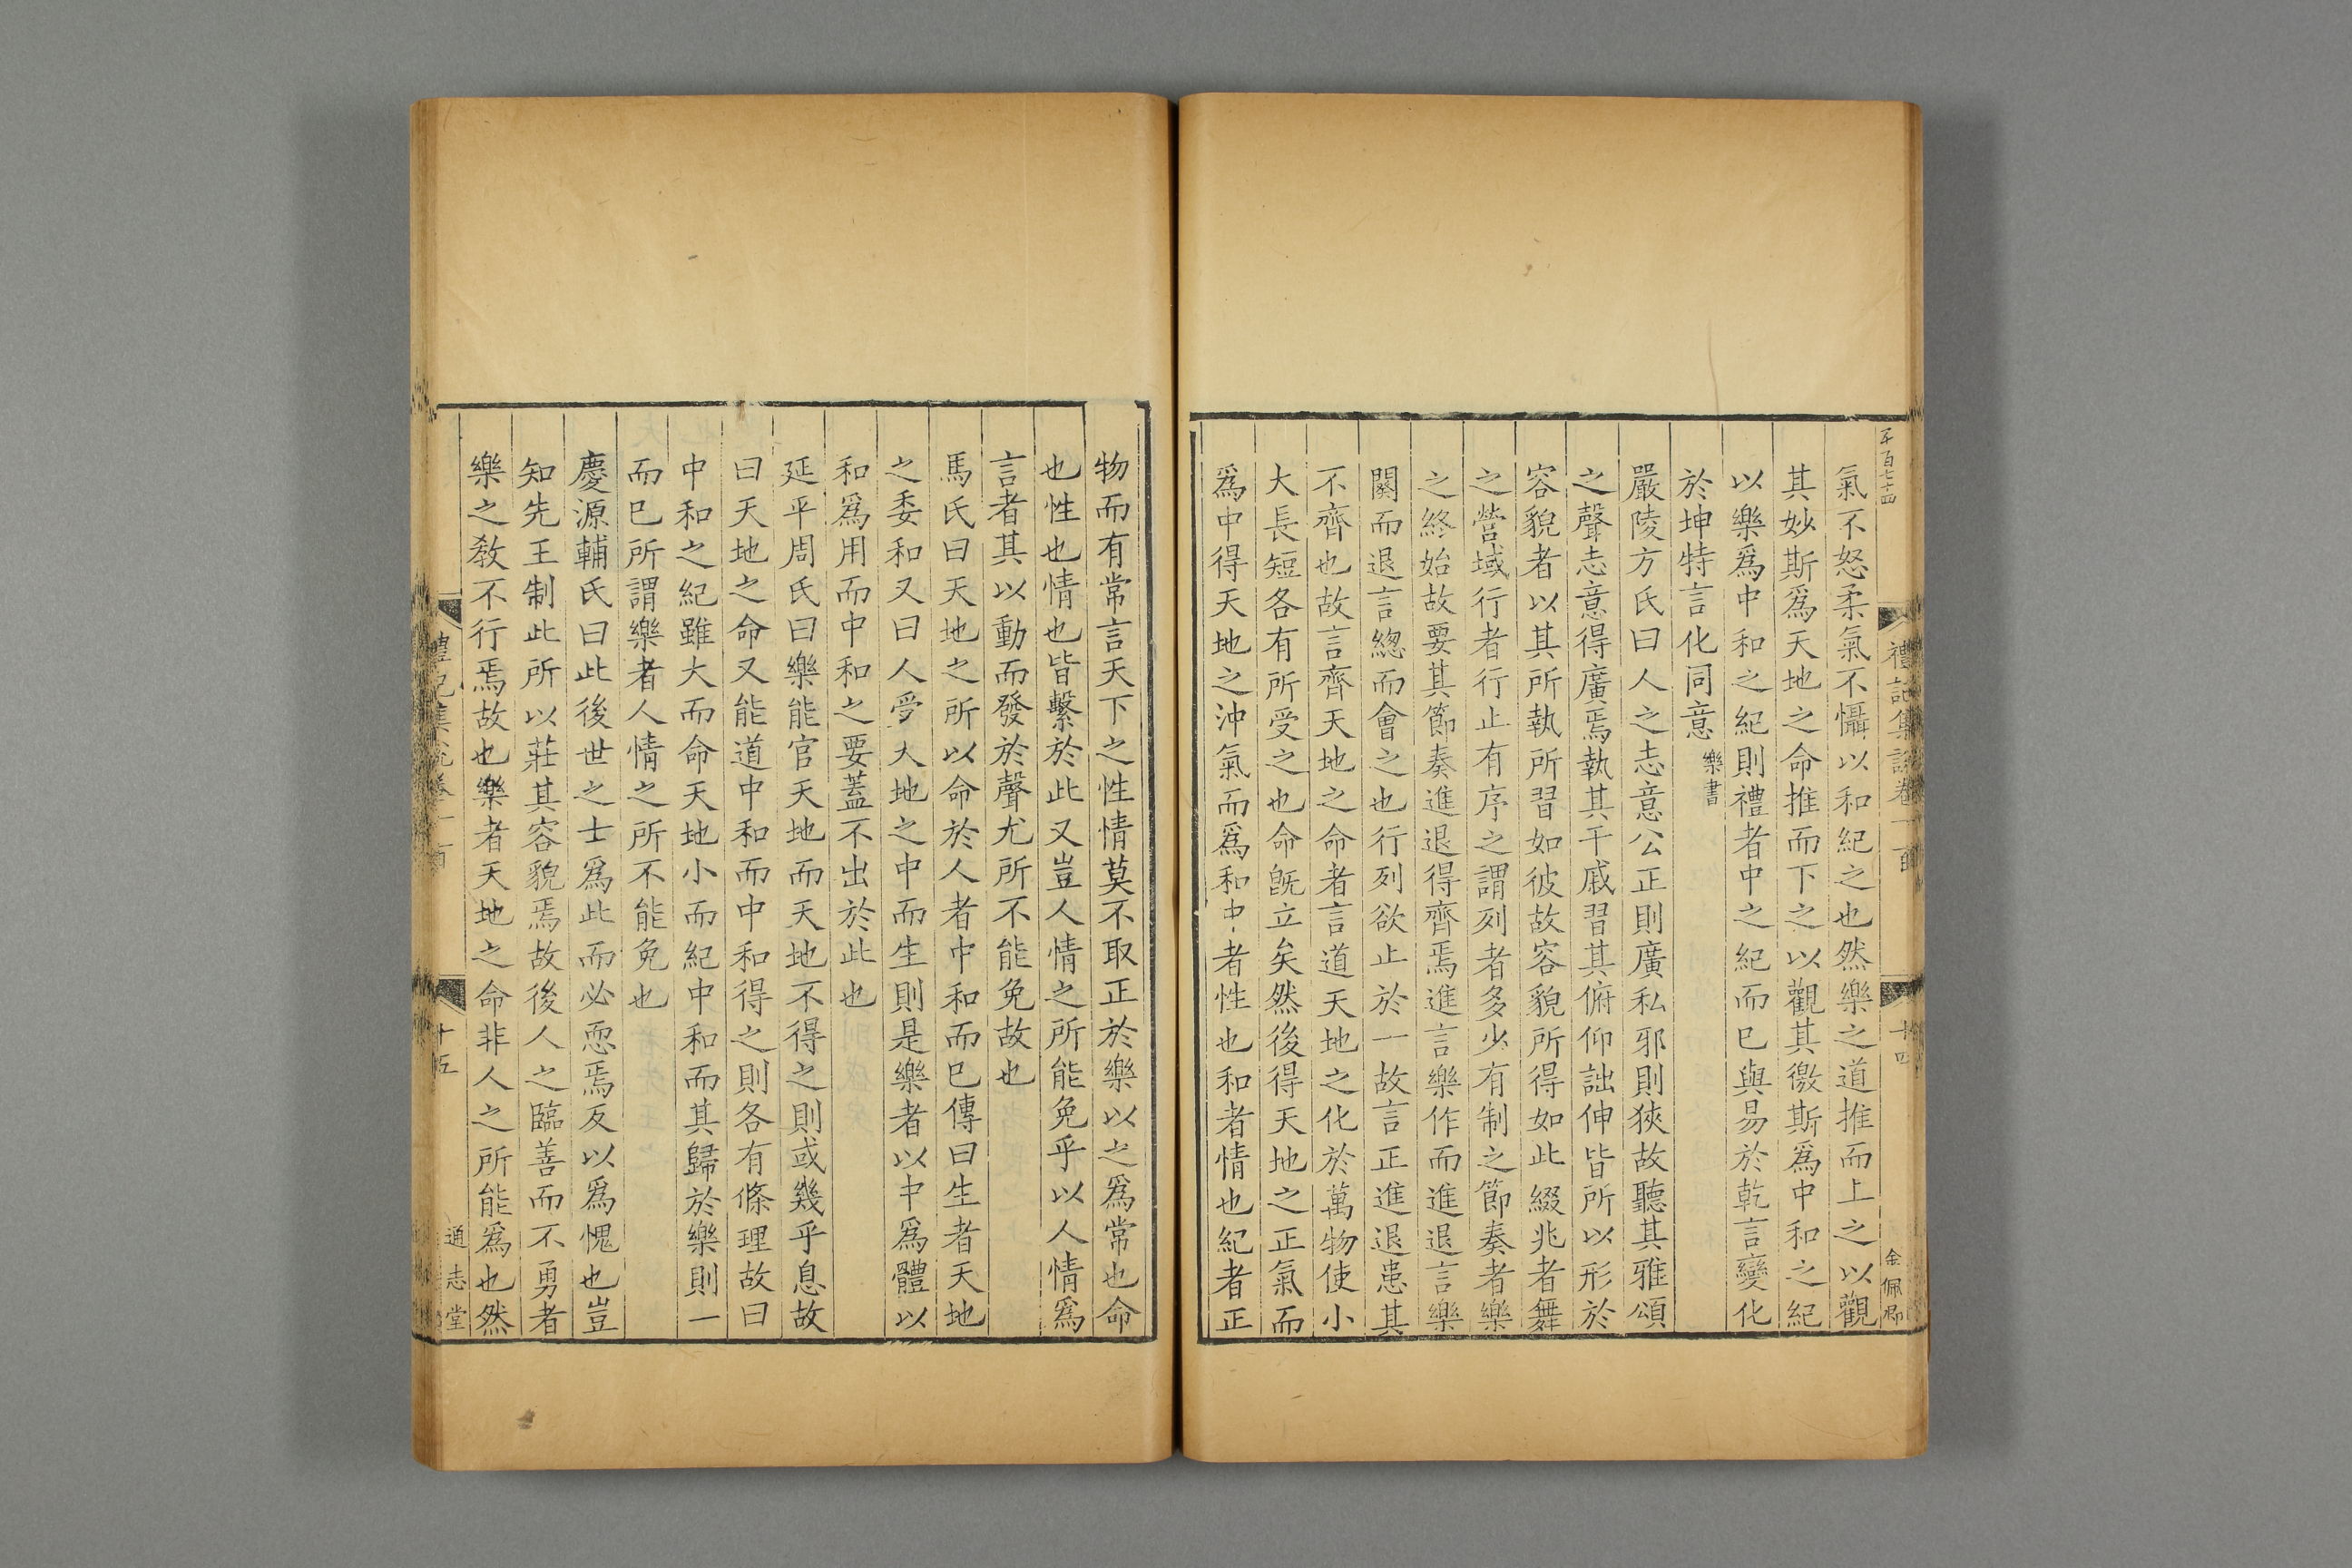 禮記集說卷一百
十四
金佩卿
氣不怒柔氣不懾以和紀之也然樂之道推而上之以觀
其妙斯爲天地之命推而下之以觀其徼斯爲中和之紀
以樂爲中和之紀則禮者中之紀而已與易於乾言變化
於坤特言化同意樂書
嚴陵方氏曰人之志意公正則廣私邪則狹故聽其雅頌
之聲志意得廣焉執其干戚習其俯仰詘伸皆所以形於
容貌者以其所執所習如彼故容貌所得如此綴兆者舞
之營域行者行止有序之謂列者多少有制之節奏者樂
之終始故要其節奏進退得齊焉進言樂作而進退言樂
闋而退言總而會之也行列欲止於一故言正進退患其
不齊也故言齊天地之命者言道天地之化於萬物使小
大長短各有所受之也命旣立矣然後得天地之正氣而
爲中得天地之沖氣而爲和中者性也和者情也紀者正
物而有常言天下之性情莫不取正於樂以之爲常也命
也性也情也皆繫於此又豈人情之所能免乎以人情爲
言者其以動而發於聲尤所不能免故也
馬氏曰天地之所以命於人者中和而已傳曰生者天地
之委和又曰人受天地之中而生則是樂者以中爲體以
和爲用而中和之要蓋不出於此也
延平周氏曰樂能官天地而天地不得之則或幾乎息故
曰天地之命又能道中和而中和得之則各有條理故曰
中和之紀雖大而命天地小而紀中和而其歸於樂則一
而已所謂樂者人情之所不能免也
慶源輔氏曰此後世之士爲此而必恧焉反以爲愧也豈
知先王制此所以莊其容貌焉故後人之臨善而不勇者
樂之教不行焉故也樂者天地之命非人之所能爲也然
禮記集說卷一百
十五
通志堂